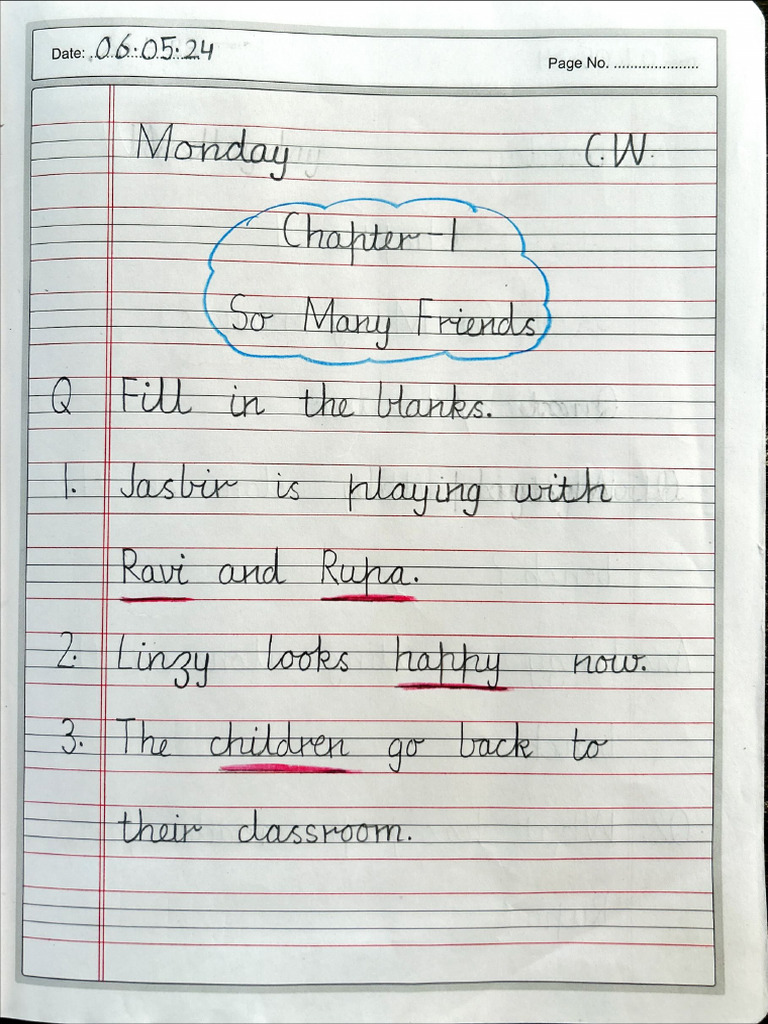 Date: 06:05:24
Page No. .....................
Monday C.W.
Chapter-1
So Many Friends
Q Fill in the blanks.
1. Jasbir is playing with
Ravi and Rupa.
2. Linzy looks happy now.
3. The children go back to
their classroom.